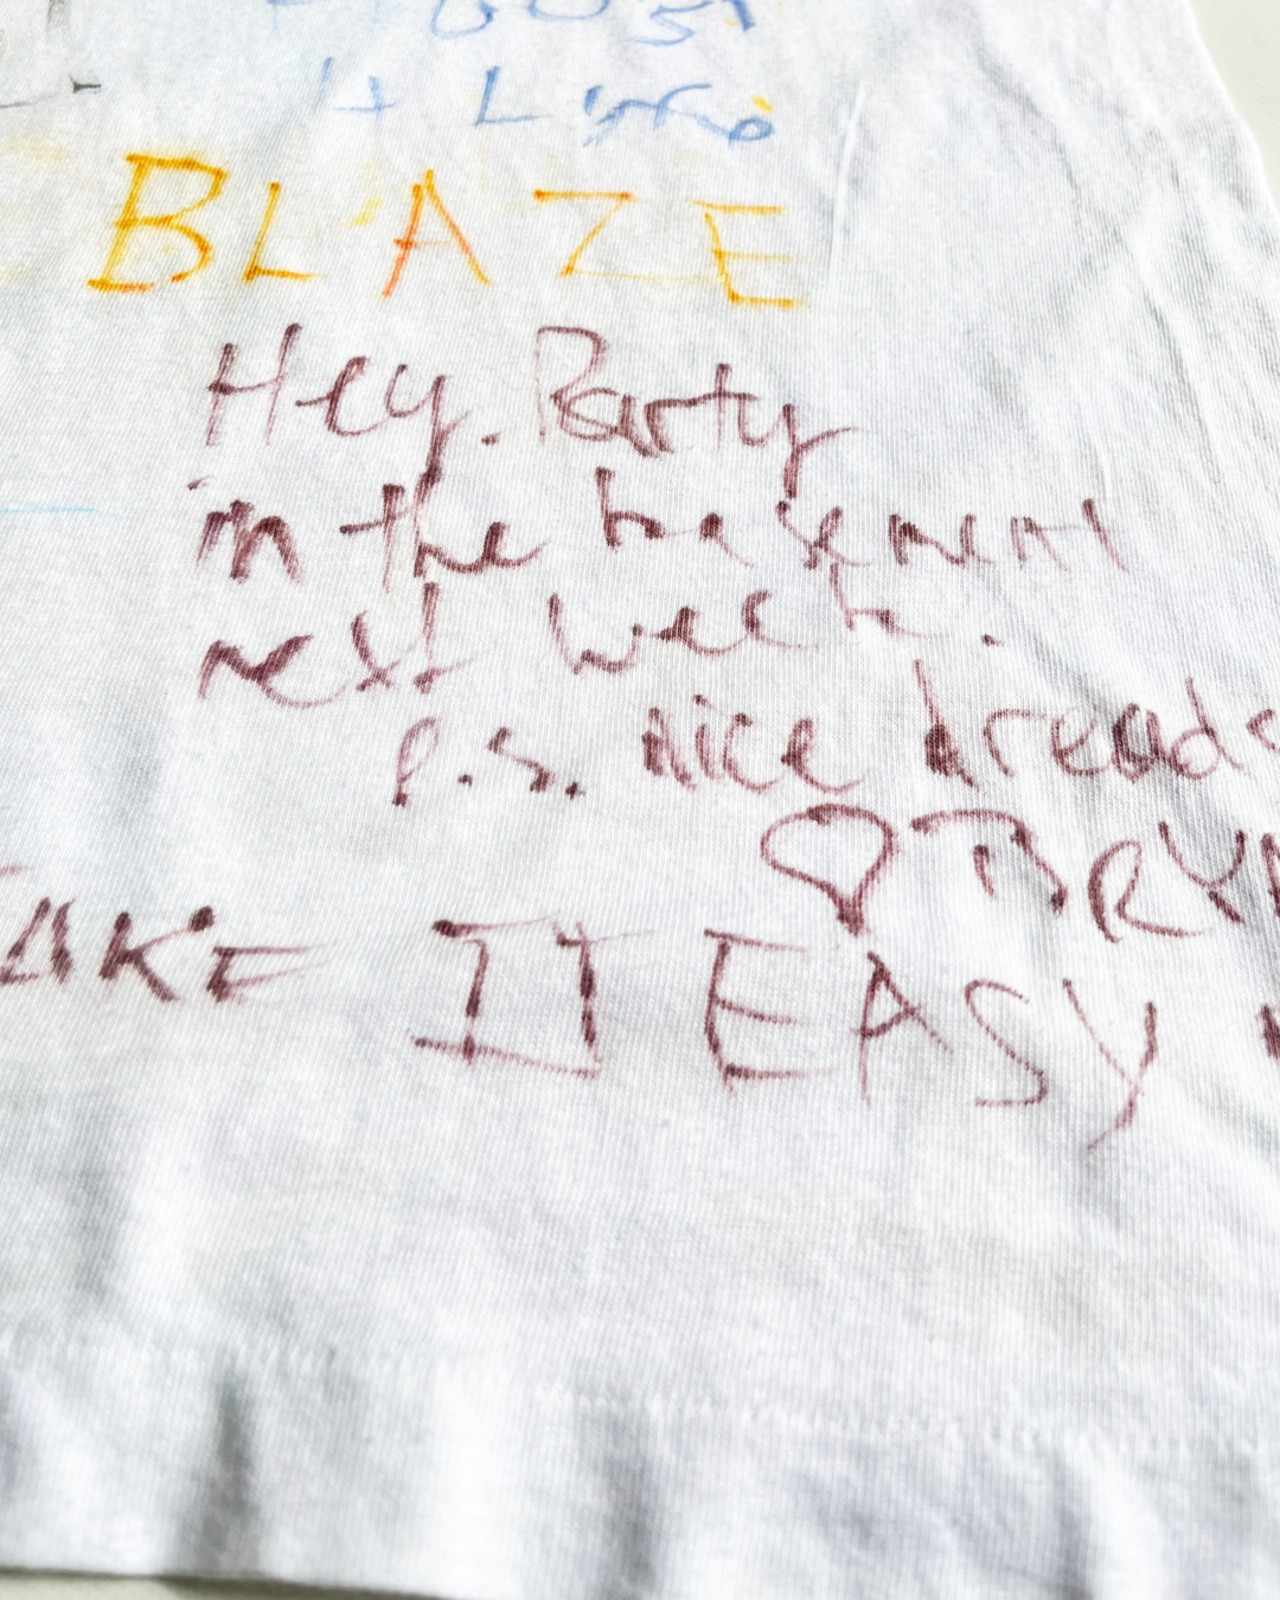 BLAZE
Hey. Party
in the basement
next week.
P.S. Nice dreads
♡ BRYA
TAKE IT EASY